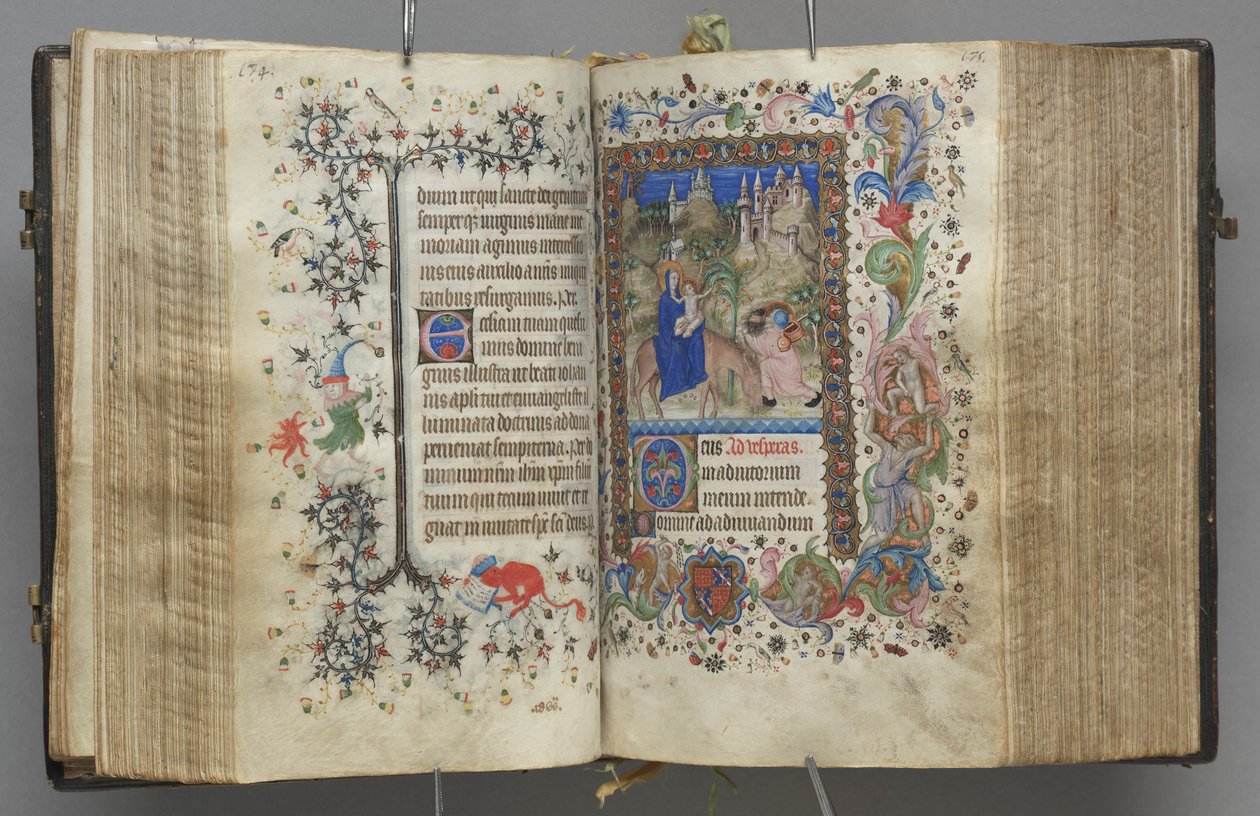 174.
dium ut qui sancte dei genitricis
semperq̢ uirginis marie me
moriam agimus intercessio
nis eius auxilio a nr̄is iniqui
tatibus resurgamus. Per.
Ecclesiam tuam quesu
mus domine beni
gnus illustra ut beati iohan
nis apl̄i tui et euuangeliste il
luminata doctrinis ad dona
perueniat sempiterna. Per do
minum nr̄m ihūm xp̄m filiu
tuum qui tecum uiuit et re
gnat in unitate sp̄c sc̄i deus. p.
175.
Deus Ad vesperas.
in adiutorium
meum intende.
Domine ad adiuuandum